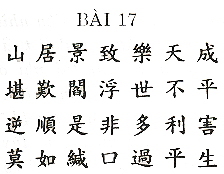 BÀI 17
山居景致樂天成
堪歎閻浮世不平
逆順是非多利害
莫如緘口過平生